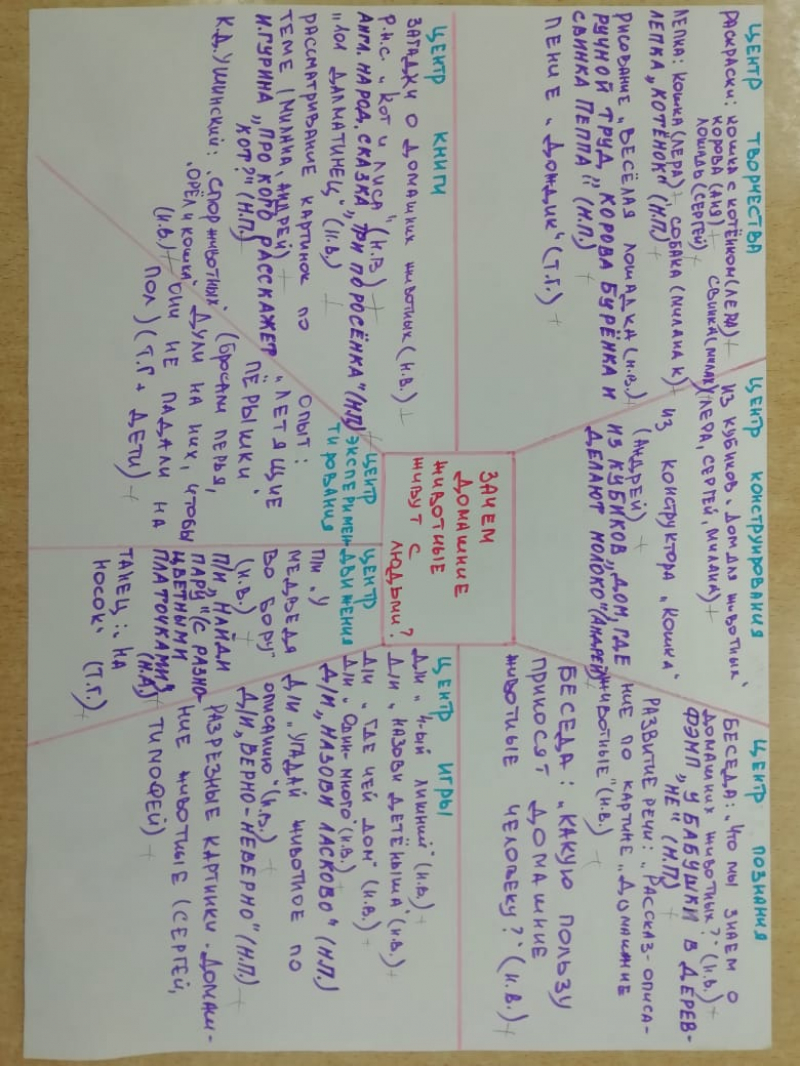 ЦЕНТР ТВОРЧЕСТВА
РАСКРАСКИ: КОШКА С КОТЁНКОМ (ЛЕРА) +
КОРОВА (АНЯ) + СВИНКА (МИЛАНА)
ЛОШАДЬ (СЕРГЕЙ) +
ЛЕПКА: КОШКА (ЛЕРА) + СОБАКА (МИЛАНА К) +
ЛЕПКА „КОТЁНОК" (Н.П.) +
РИСОВАНИЕ „ВЕСЁЛАЯ ЛОШАДКА" (Н.В.) +
РУЧНОЙ ТРУД „КОРОВА БУРЁНКА И
СВИНКА ПЕППА" (Н.П.) +
ПЕНИЕ „ДОЖДИК" (Т.Г.) +
ЦЕНТР КОНСТРУИРОВАНИЯ
ИЗ КУБИКОВ „ДОМ ДЛЯ ЖИВОТНЫХ"
(ЛЕРА, СЕРГЕЙ, МИЛАНА) +
ИЗ КОНСТРУКТОРА „КОШКА"
(АНДРЕЙ) +
ИЗ КУБИКОВ „ДОМ, ГДЕ
ДЕЛАЮТ МОЛОКО" (АНДРЕЙ)
ЦЕНТР ПОЗНАНИЯ
БЕСЕДА: „ЧТО МЫ ЗНАЕМ О
ДОМАШНИХ ЖИВОТНЫХ?" (Н.В.) +
ФЭМП „У БАБУШКИ В ДЕРЕВ-
НЕ" (Н.П.) +
РАЗВИТИЕ РЕЧИ: „РАССКАЗ-ОПИСА-
НИЕ ПО КАРТИНЕ „ДОМАШНИЕ
ЖИВОТНЫЕ" (Н.В.) +
БЕСЕДА: „КАКУЮ ПОЛЬЗУ
ПРИНОСЯТ ДОМАШНИЕ
ЖИВОТНЫЕ ЧЕЛОВЕКУ?" (Н.В.) +
ЗАЧЕМ
ДОМАШНИЕ
ЖИВОТНЫЕ
ЖИВУТ С
ЛЮДЬМИ?
ЦЕНТР КНИГИ
ЗАГАДКИ О ДОМАШНИХ ЖИВОТНЫХ (Н.В.) +
Р.Н.С. „КОТ И ЛИСА" (Н.В) +
АНГЛ. НАРОД. СКАЗКА „ТРИ ПОРОСЁНКА" (Н.П) +
ДАЛМАТИНЕЦ" (Н.В.) +
РАССМАТРИВАНИЕ КАРТИНОК ПО
ТЕМЕ (МИЛАНА, АНДРЕЙ) +
И.ГУРИНА „ПРО КОГО РАССКАЖЕТ
КОТ?" (Н.П.) +
К.Д. УШИНСКИЙ: „СПОР ЖИВОТНЫХ"
„ОРЁЛ И КОШКА"
(Н.В.) +
ЦЕНТР
ЭКСПЕРИМЕН
ТИРОВАНИЯ
ОПЫТ:
„ЛЕТЯЩИЕ
ПЁРЫШКИ"
(БРОСАЛИ ПЕРЬЯ,
ДУЛИ НА НИХ, ЧТОБЫ
ОНИ НЕ ПАДАЛИ НА
ПОЛ) (Т.Г + ДЕТИ) +
ЦЕНТР
ДВИЖЕНИЯ
П/И „У
МЕДВЕДЯ
ВО БОРУ"
(Н.В.) +
П/И „НАЙДИ
ПАРУ" (С РАЗНО-
ЦВЕТНЫМИ
ПЛАТОЧКАМИ)
ТАНЕЦ: „НА
НОСОК" (Т.Г) +
ЦЕНТР ИГРЫ
Д/И „4-ЫЙ ЛИШНИЙ" (Н.В.) +
Д/И „НАЗОВИ ДЕТЁНЫША" (Н.В.) +
Д/И „ГДЕ ЧЕЙ ДОМ" (Н.В.) +
Д/И „ОДИН-МНОГО" (Н.В.) +
Д/И „НАЗОВИ ЛАСКОВО" (Н.П.)
Д/И „УГАДАЙ ЖИВОТНОЕ ПО
ОПИСАНИЮ" (Н.В.) +
Д/И „ВЕРНО-НЕВЕРНО" (Н.П.) +
РАЗРЕЗНЫЕ КАРТИНКИ „ДОМАШ-
НИЕ ЖИВОТНЫЕ (СЕРГЕЙ,
ТИМОФЕЙ) +